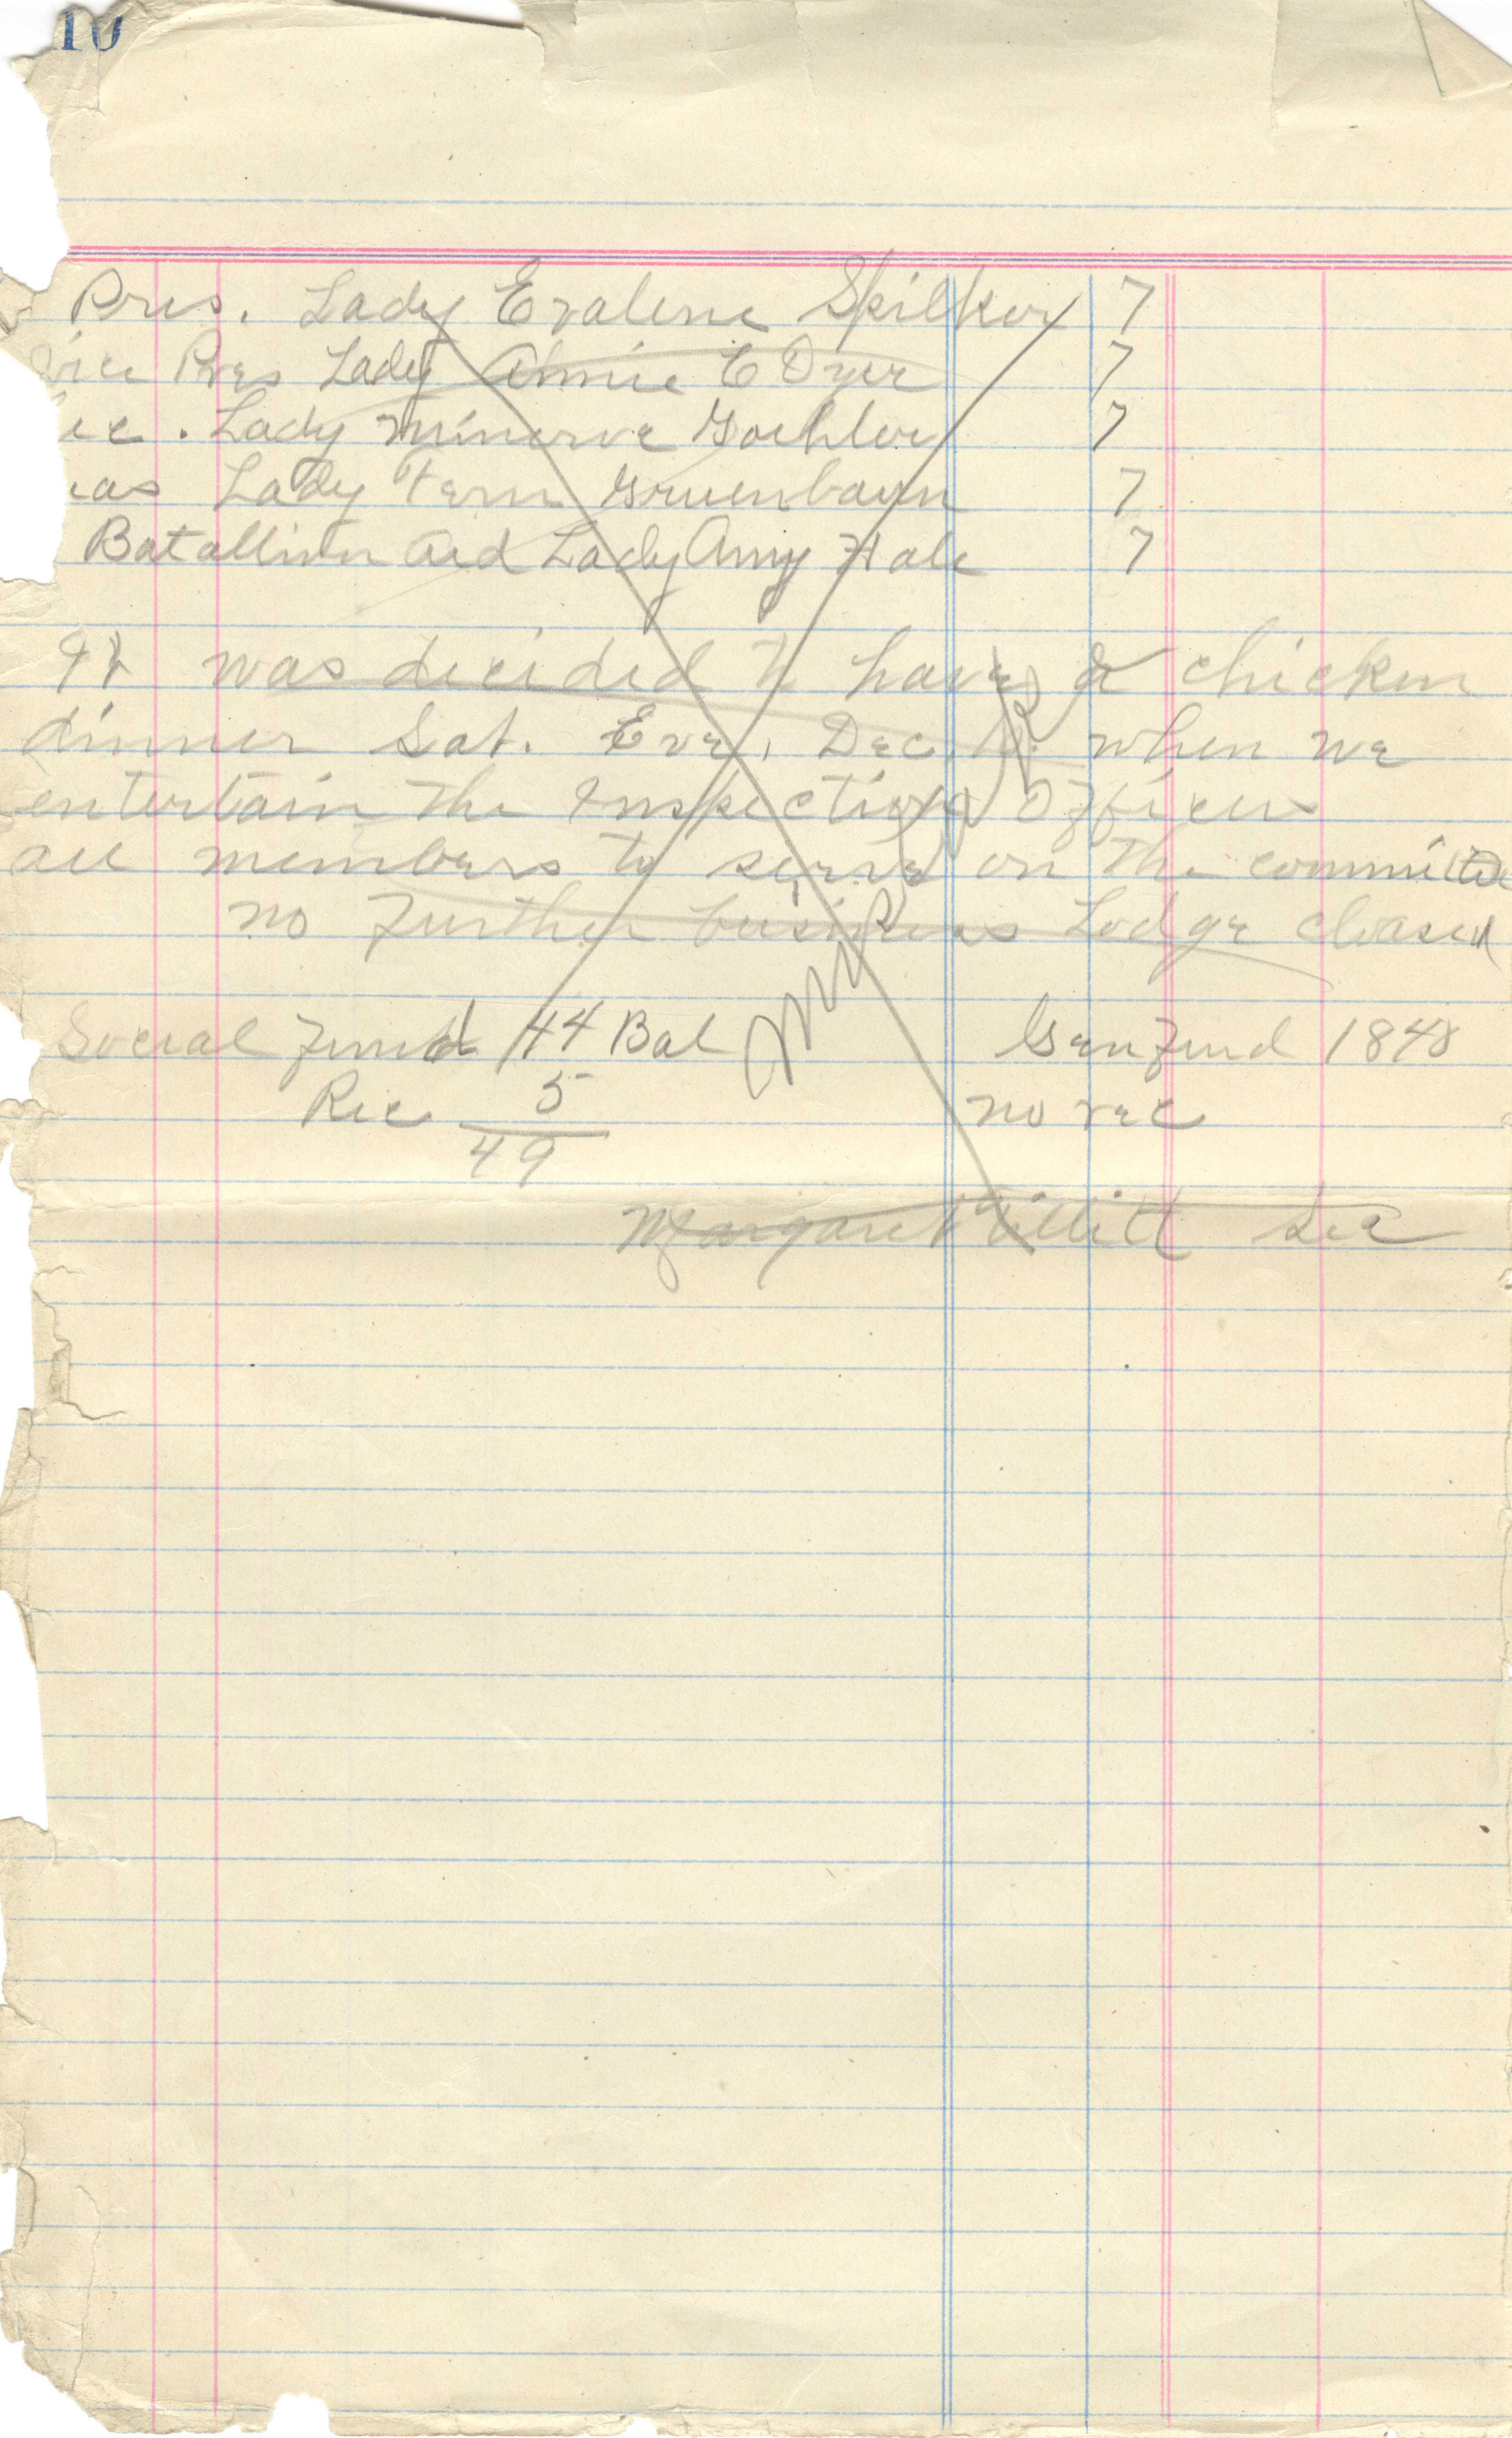 10
Pres. Lady Evalene Spilker 7
Vice Pres Lady Annie E Dyer 7
ec. Lady Minerve Goehler 7
eas Lady Fern Gruenbaum 7
Batallion Aid Lady Amy Hale 7
It was decided to have a chicken
dinner Sat. Eve, Dec. when we
entertain the Inspecting Officer
all members to serve on the committee
no further business Lodge cloased
Social Fund 44 Bal Gen Fund 1848
Rec 5 no rec
49
Margaret Sec